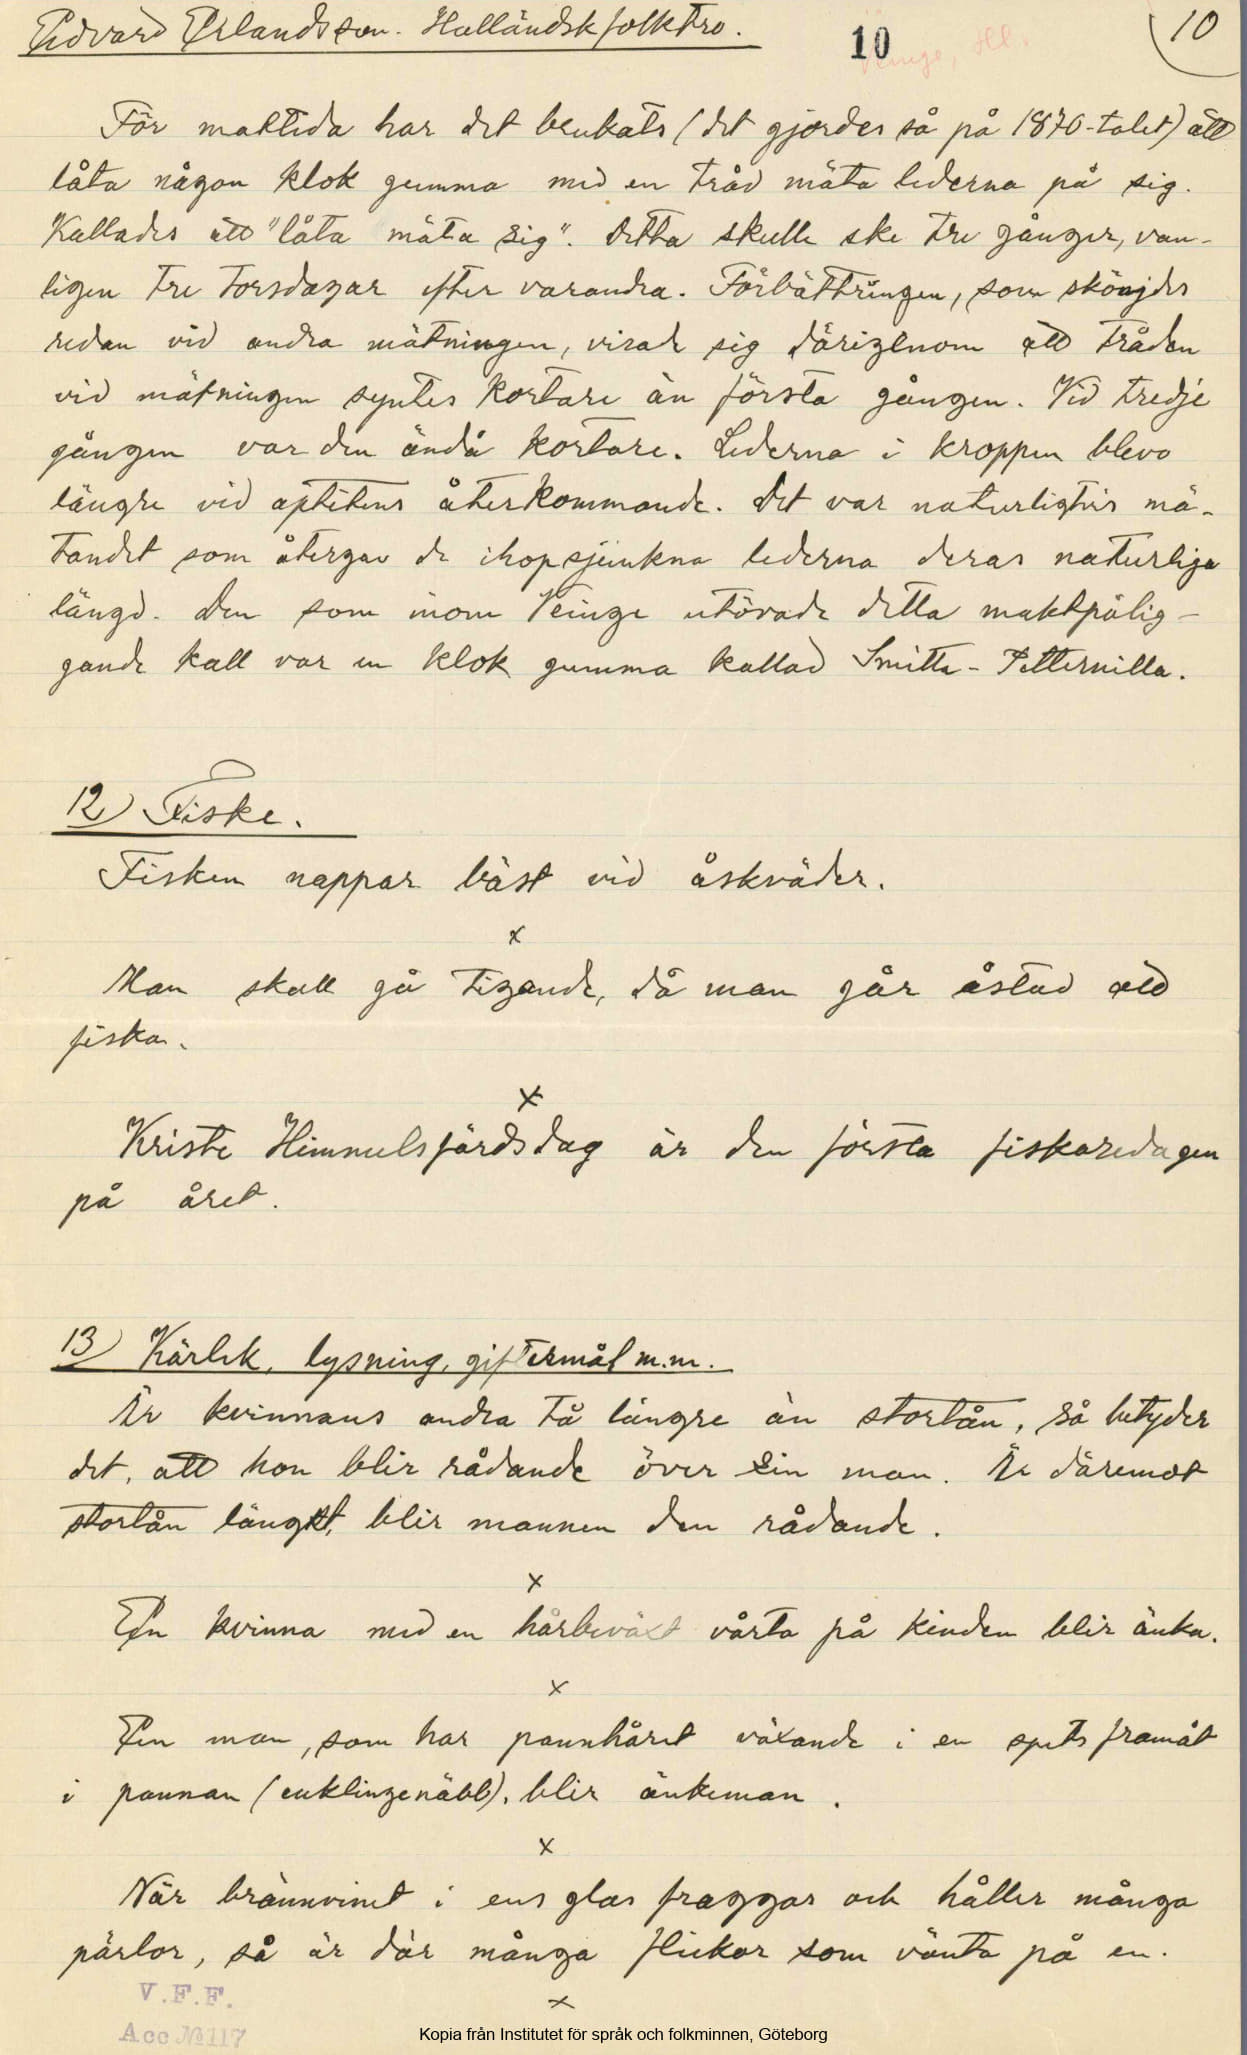 Edvard Erlandsson. Halländsk folktro.
10
10
Veinge, Hl.
För maktida har det brukats (det gjordes så på 1870-talet) att
låta någon klok gumma med en tråd mäta lederna på sig.
Kallades att "låta mäta sig". Detta skulle ske tre gånger, van-
ligen tre torsdagar efter varandra. Förbättringen, som skönjdes
redan vid andra mätningen, visade sig därigenom att tråden
vid mätningen syntes kortare än första gången. Vid tredje
gången var den ändå kortare. Lederna i kroppen blevo
längre vid aptitens återkommande. Det var naturligtvis mä-
tandet som återgav de ihopsjunkna lederna deras naturliga
längd. Den som inom Veinge utövade detta maktpålig-
gande kall var en klok gumma kallad Smitta-Petternilla.
12) Fiske.
Fisken nappar bäst vid åskväder.
x
Man skall gå tigande, då man går åstad att
fiska.
x
Kriste Himmelsfärdsdag är den första fiskaredagen
på året.
13) Kärlek, lysning, giftermål m.m.
Är kvinnans andra tå längre än stortån, så betyder
det, att hon blir rådande över sin man. Är däremot
stortån längst, blir mannen den rådande.
x
En kvinna med en hårbeväxt vårta på kinden blir änka.
x
En man, som har pannhåret växande i en spets framåt
i pannan (enklingenäbb), blir änkeman.
x
När brännvinet i ens glas fraggar och håller många
pärlor, så är där många flickor som vänta på en.
x
V.F.F.
Acc № 117
Kopia från Institutet för språk och folkminnen, Göteborg